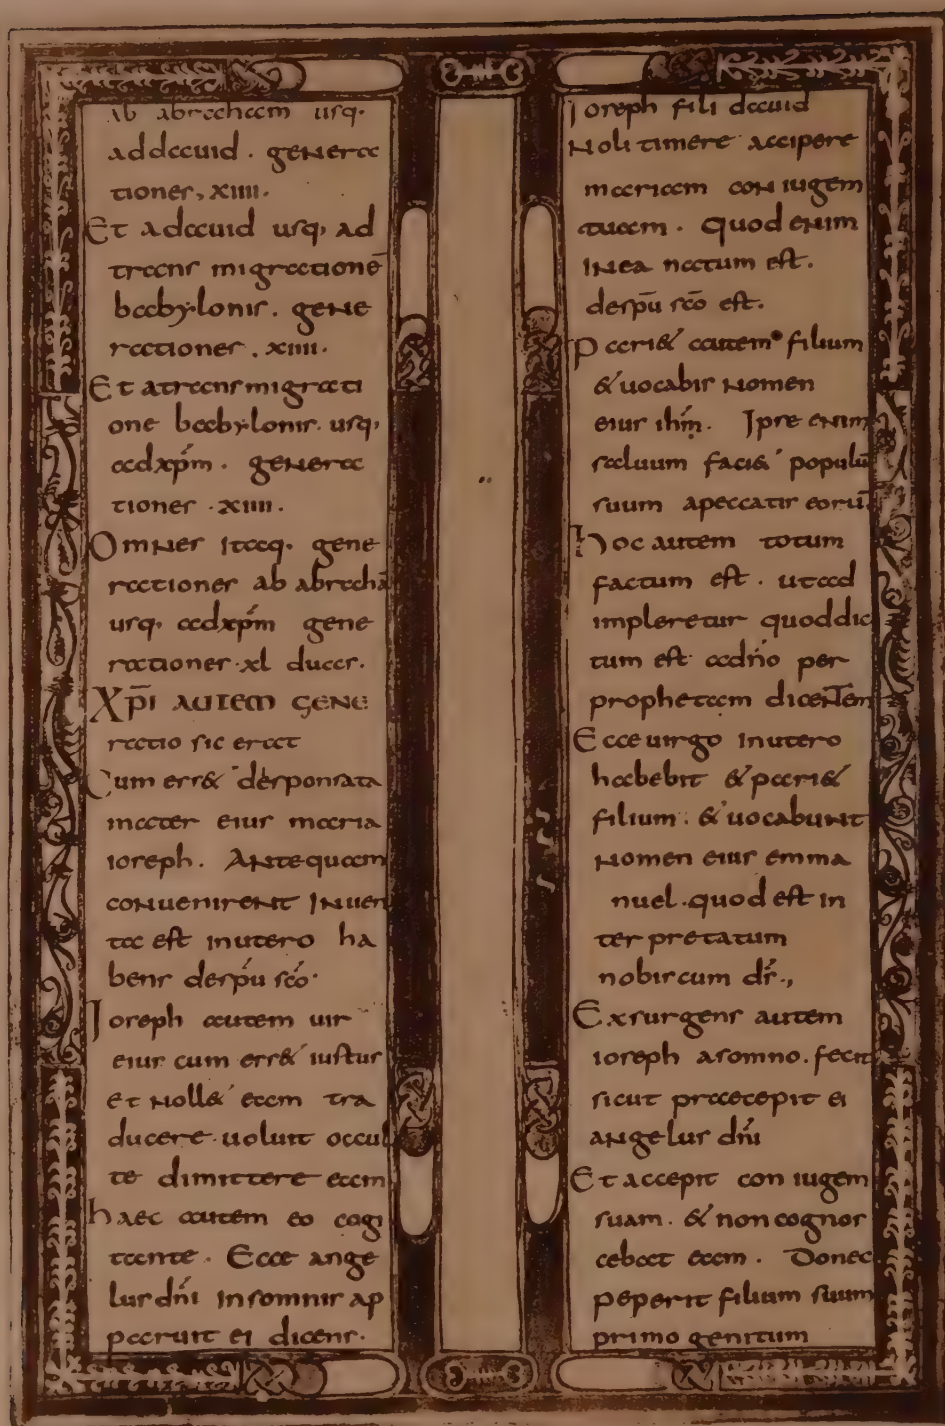 Ab abraham usq·
addauid . genera
tiones, xiiii.
Et adauid usq, ad
trans migrationē
babylonis . gene
rationes . xiiii.
Et atransmigrati
one babylonis usq,
adxp̄m . genera
tiones . xiiii .
Omnes itaq. gene
rationes ab abrahā
usq, adxp̄m gene
rationes . xl duas.
Xp̄i autem gene
ratio sic erat
Cum ess& desponsata
mater eius maria
ioseph . Antequam
conuenirent Inuen
ta est inutero ha
bens desp̄u sc̄o·
Ioseph autem uir
eius cum ess& iustus
Et noll& eam tra
ducere . uoluit occul
te dimittere eam
haec autem eo cogi
tante . Ecce ange
lus dn̄i insomnis ap
paruit ei dicens·
Ioseph fili dauid
Noli timere accipere
mariam con iugem
tuam . Quod enim
inea natum est .
desp̄u sc̄o est.
Pari& autem filium
& uocabis nomen
eius ihm̄ . Ipse enim
saluum faci& populū
suum apeccatis eorū
Hoc autem totum
factum est . utad
impleretur quoddic
tum est adn̄o per
prophetam dicentem
Ecce uirgo inutero
habebit & pari&
filium . & uocabunt
nomen eius emma
nuel . quod est in
ter pretatum
nobiscum dr̄.,
Exsurgens autem
ioseph asomno . fecit
sicut praecepit ei
angelus dn̄i
Et accepit con iugem
suam . & non cognos
cebat eam . Donec
peperit filium suum
primo genitum